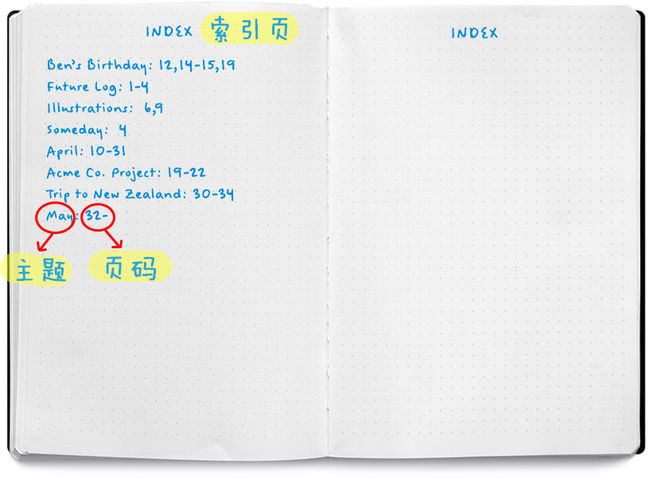 INDEX 索引页
Ben's Birthday: 12,14-15,19
Future Log: 1-4
Illustrations: 6,9
Someday: 4
April: 10-31
Acme Co. Project: 19-22
Trip to New Zealand: 30-34
May: 32-
主题 页码
INDEX